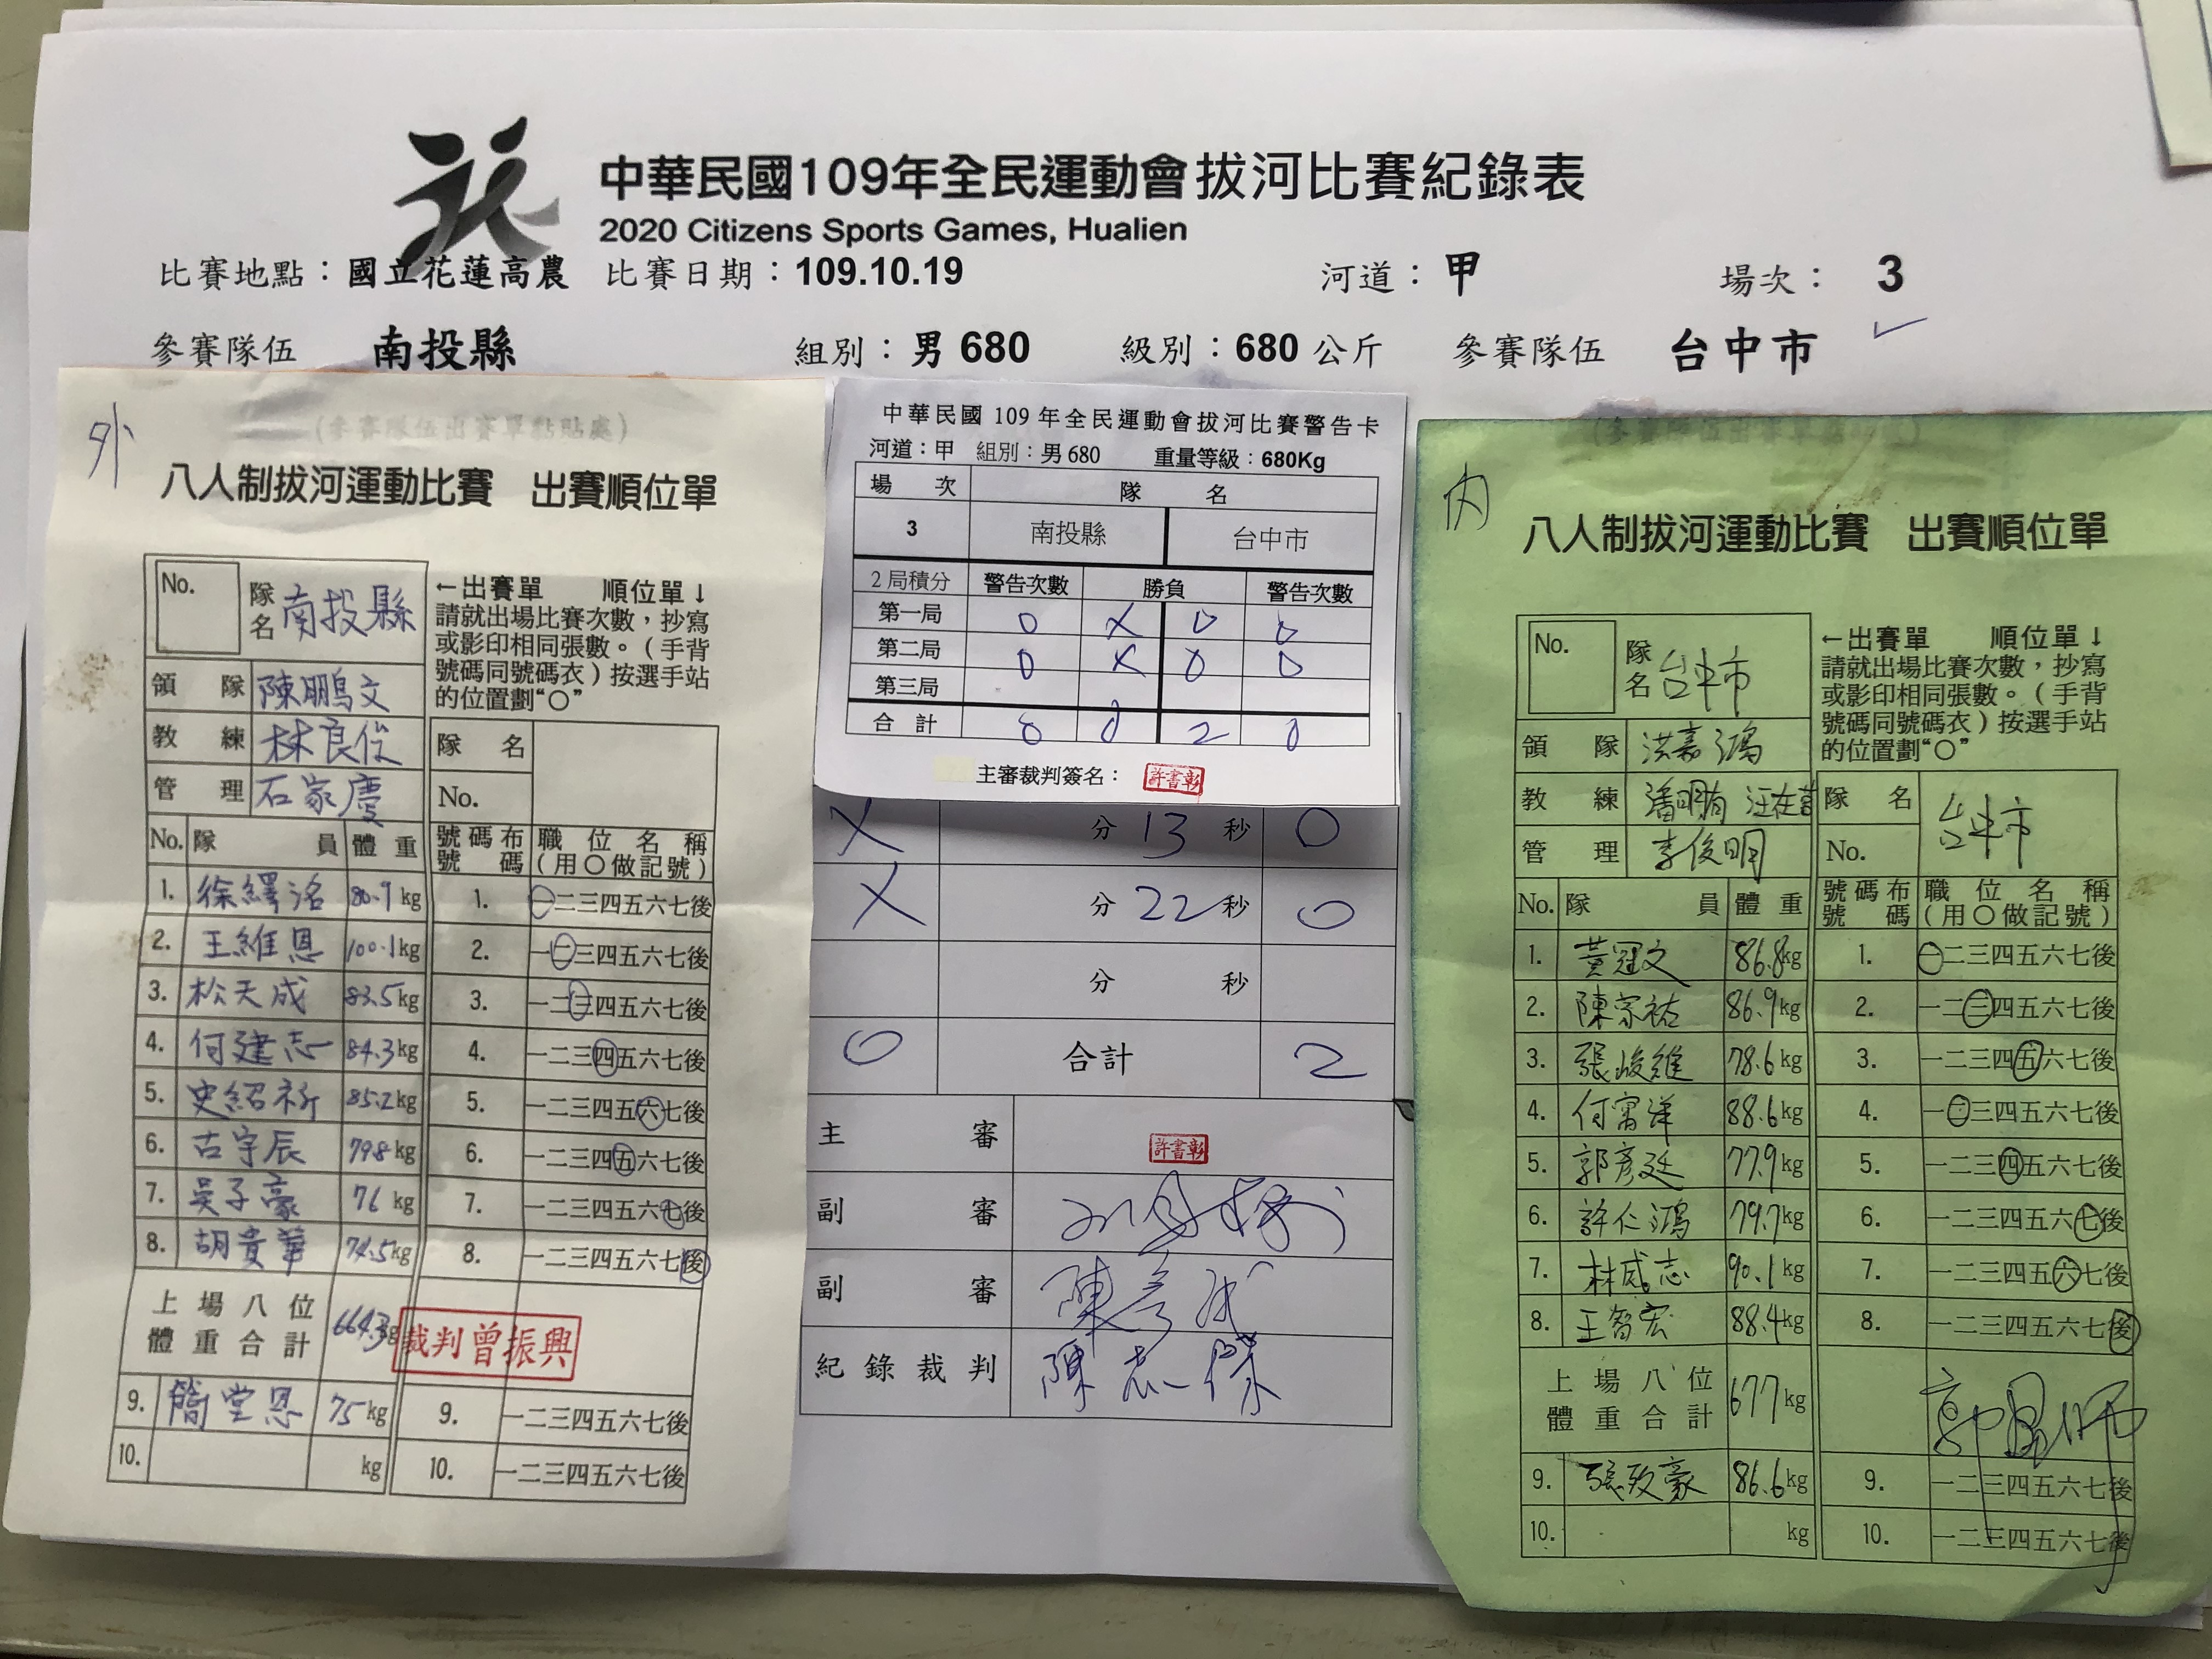 中華民國109年全民運動會拔河比賽紀錄表
2020 Citizens Sports Games, Hualien
比賽地點：國立花蓮高農 比賽日期：109.10.19 河道：甲 場次： 3
參賽隊伍 南投縣 組別：男 680 級別：680 公斤 參賽隊伍 台中市
外
(參賽隊伍出賽單黏貼處)
八人制拔河運動比賽 出賽順位單
No. 隊名 南投縣
←出賽單 順位單↓
請就出場比賽次數，抄寫
或影印相同張數。（手背
號碼同號碼衣）按選手站
的位置劃“○”
領隊 陳鵬文
教練 林良俊
管理 石家慶
隊名
No.
No. 隊員 體重 號碼布號碼 職位名稱(用○做記號)
1. 徐繹洺 80.9kg 1. 一二三四五六七後
2. 王維恩 100.1kg 2. 一二三四五六七後
3. 松天成 83.5kg 3. 一二三四五六七後
4. 何建志 84.3kg 4. 一二三四五六七後
5. 史紹祈 85.2kg 5. 一二三四五六七後
6. 古宇辰 79.8kg 6. 一二三四五六七後
7. 吳子豪 76 kg 7. 一二三四五六七後
8. 胡貴華 74.5kg 8. 一二三四五六七後
上場八位體重合計 664.3kg
裁判曾振興
9. 簡堂恩 75kg 9. 一二三四五六七後
10. kg 10. 一二三四五六七後
中華民國 109 年全民運動會拔河比賽警告卡
河道：甲 組別：男 680 重量等級：680Kg
場次 隊名
3 南投縣 台中市
2 局積分 警告次數 勝負 警告次數
第一局 0 X 0 0
第二局 0 X 0 0
第三局
合計 0 0 2 0
主審裁判簽名： 許書彰
X 分 13 秒 O
X 分 22 秒 O
分 秒
0 合計 2
主審 許書彰
副審
副審 陳彥成
紀錄裁判 陳志傑
內
八人制拔河運動比賽 出賽順位單
No. 隊名 台中市
←出賽單 順位單↓
請就出場比賽次數，抄寫
或影印相同張數。（手背
號碼同號碼衣）按選手站
的位置劃“○”
領隊 洪嘉鴻
教練
管理 李俊明
隊名 台中市
No.
No. 隊員 體重 號碼布號碼 職位名稱(用○做記號)
1. 黃冠文 86.8kg 1. 一二三四五六七後
2. 陳宗祐 86.9kg 2. 一二三四五六七後
3. 張峻維 78.6kg 3. 一二三四五六七後
4. 何甯洋 88.6kg 4. 一二三四五六七後
5. 郭彥廷 77.9kg 5. 一二三四五六七後
6. 許仁鴻 79.7kg 6. 一二三四五六七後
7. 林威志 90.1kg 7. 一二三四五六七後
8. 王智宏 88.4kg 8. 一二三四五六七後
上場八位體重合計 677kg
9. 張致豪 86.6kg 9. 一二三四五六七後
10. kg 10. 一二三四五六七後